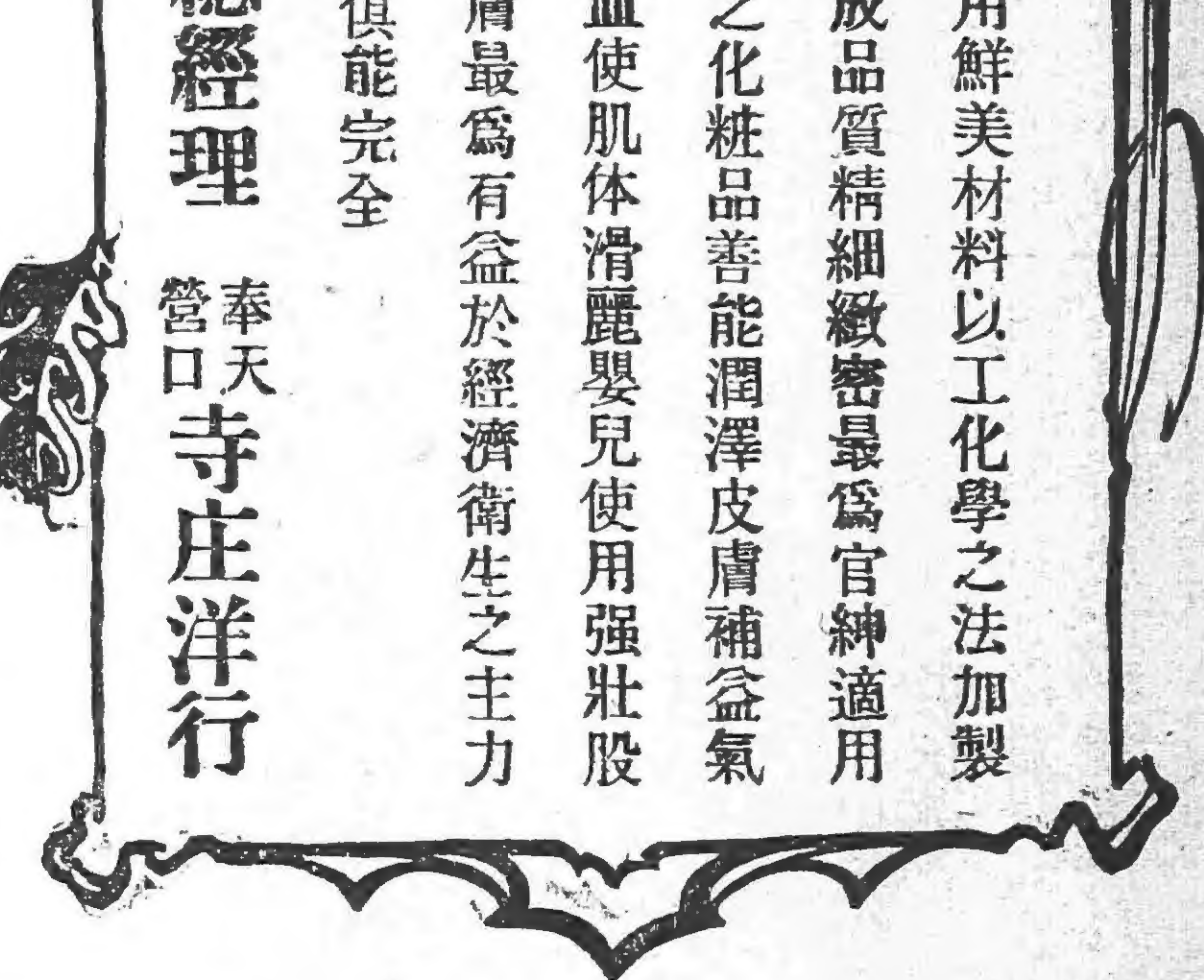 用鮮美材料以工化學之法加製
成品質精細緻密最爲官紳適用
之化粧品善能潤澤皮膚補益氣
血使肌体滑麗嬰兒使用强壯股
膚最爲有益於經濟衛生之主力
俱能完全
總經理
奉天
營口
寺庄洋行